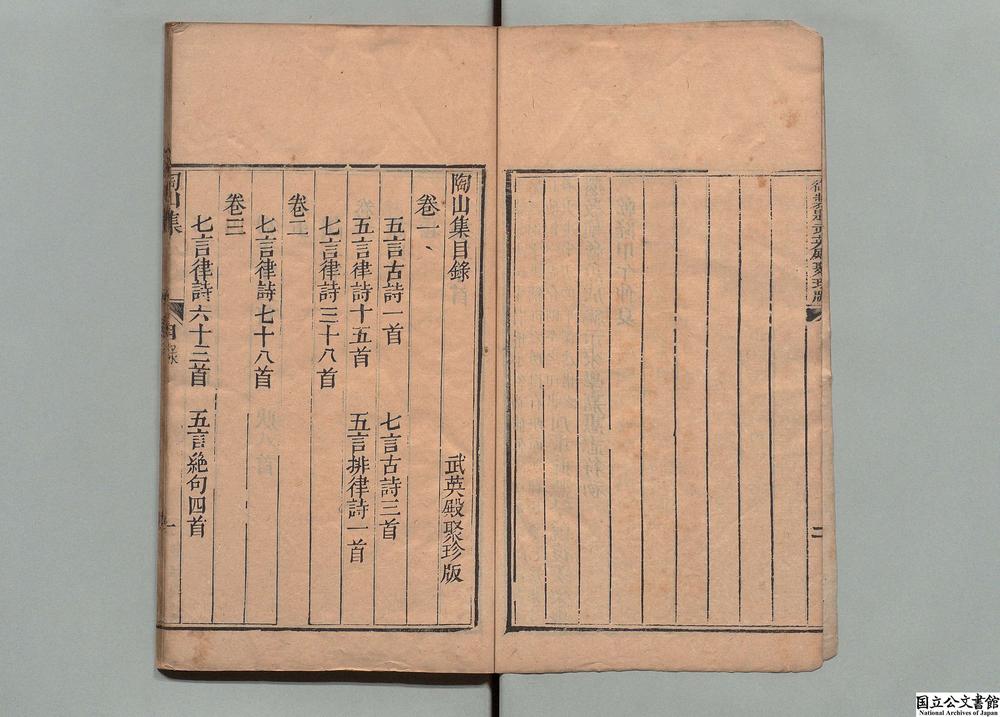 陶山集目錄
武英殿聚珍版
卷一
五言古詩一首　七言古詩三首
五言律詩十五首　五言排律詩一首
七言律詩三十八首
卷二
七言律詩七十八首
卷三
七言律詩六十三首　五言絶句四首
陶山集
目錄
一
二
国立公文書館
National Archives of Japan